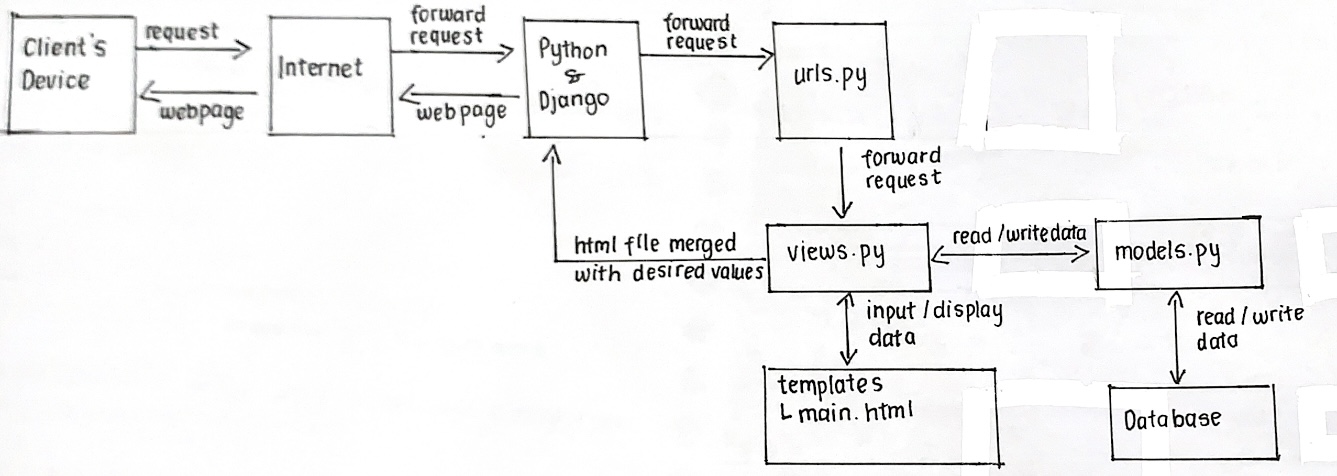 Client's
Device
request
webpage
Internet
forward
request
webpage
Python
&
Django
forward
request
urls.py
forward
request
html file merged
with desired values
views.py
read/write data
models.py
input/display
data
read/write
data
templates
└ main.html
Database